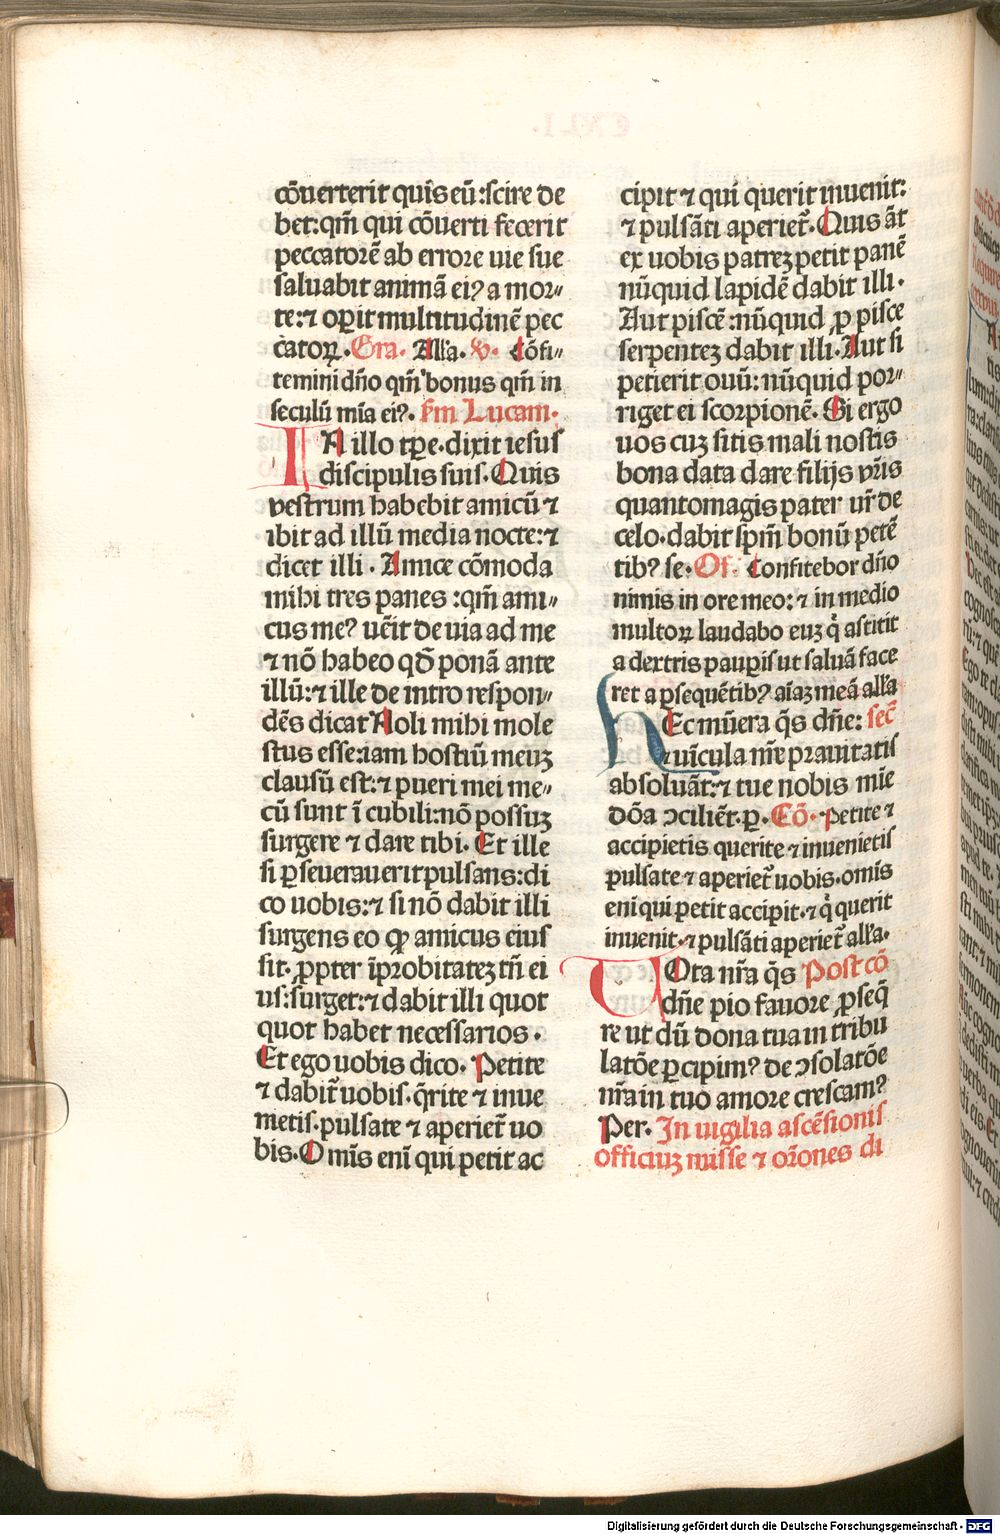 cōuerterit quis eū:scire de
bet:qm̄ qui cōuerti fecerit
peccatorē ab errore uie sue
saluabit animā eiꝰ a mor⸗
te:⁊ oꝑit multitudinē pec
catoꝝ. Gra. All'a. ℣. Cōfi⸗
temini dn̄o qm̄ bonus qm̄ in
seculū mīa eiꝰ. Sm̄ Lucam.
IN illo tꝑe. dixit iesus
discipulis suis. Quis
vestrum habebit amicū ⁊
ibit ad illū media nocte:⁊
dicet illi. Amice cōmoda
mihi tres panes:qm̄ ami⸗
cus meꝰ uēit de uia ad me
⁊ nō habeo qd̄ ponā ante
illū:⁊ ille de intro respon⸗
dēs dicat Noli mihi mole
stus esse:iam hostiū meuꝫ
clausū est:⁊ pueri mei me⸗
cū sunt ī cubili:nō possuꝫ
surgere ⁊ dare tibi. Et ille
si ꝑseuerauerit pulsans:di
co uobis:⁊ si nō dabit illi
surgens eo ꝙ amicus eius
sit. ꝓpter īprobitateꝫ tn̄ ei
us:surget:⁊ dabit illi quot
quot habet necessarios.
Et ego uobis dico. Petite
⁊ dabit̄ uobis. q̄rite ⁊ inue
nietis. pulsate ⁊ aperiet̄ uo
bis. Omīs eni qui petit ac
cipit ⁊ qui querit inuenit:
⁊ pulsāti aperiet̄. Quis āt
ex uobis patreꝫ petit panē
nūquid lapidē dabit illi.
Aut piscē:nūquid ꝓ pisce
serpenteꝫ dabit illi. Aut si
petierit ouū: nūquid por⸗
riget ei scorpionē. Si ergo
uos cuꝫ sitis mali nostis
bona data dare filijs vr̄is
quantomagis pater ur̄ de
celo. dabit sp̄m bonū petē
tibꝰ se. Of. Confitebor dn̄o
nimis in ore meo:⁊ in medio
multoꝝ laudabo euꝫ q̄ astitit
a dextris pauꝑis ut saluā face
ret a ꝑsequētibꝰ aīaꝫ meā all'a
HEc mūera q̄s dn̄e: sec̄
⁊ uīcula nr̄e prauitatis
absoluāt:⁊ tue nobis mīe
dōa ↄciliēt. ꝑ. Cō. Petite ⁊
accipietis querite ⁊ inuenietis
pulsate ⁊ aperiet̄ uobis. omīs
eni qui petit accipit. ⁊ q̄ querit
inuenit. ⁊ pulsāti aperiet̄ all'a.
VOta nr̄a q̄s Post cō
dn̄e pio fauore ꝓseq̄
re ut dū dona tua in tribu
latōe ꝑcipimꝰ de ↄsolatōe
nr̄a in tuo amore crescamꝰ
Per. In uigilia ascēsionis
officiuꝫ misse ⁊ or̄ones di
Digitalisierung gefördert durch die Deutsche Forschungsgemeinschaft - DFG